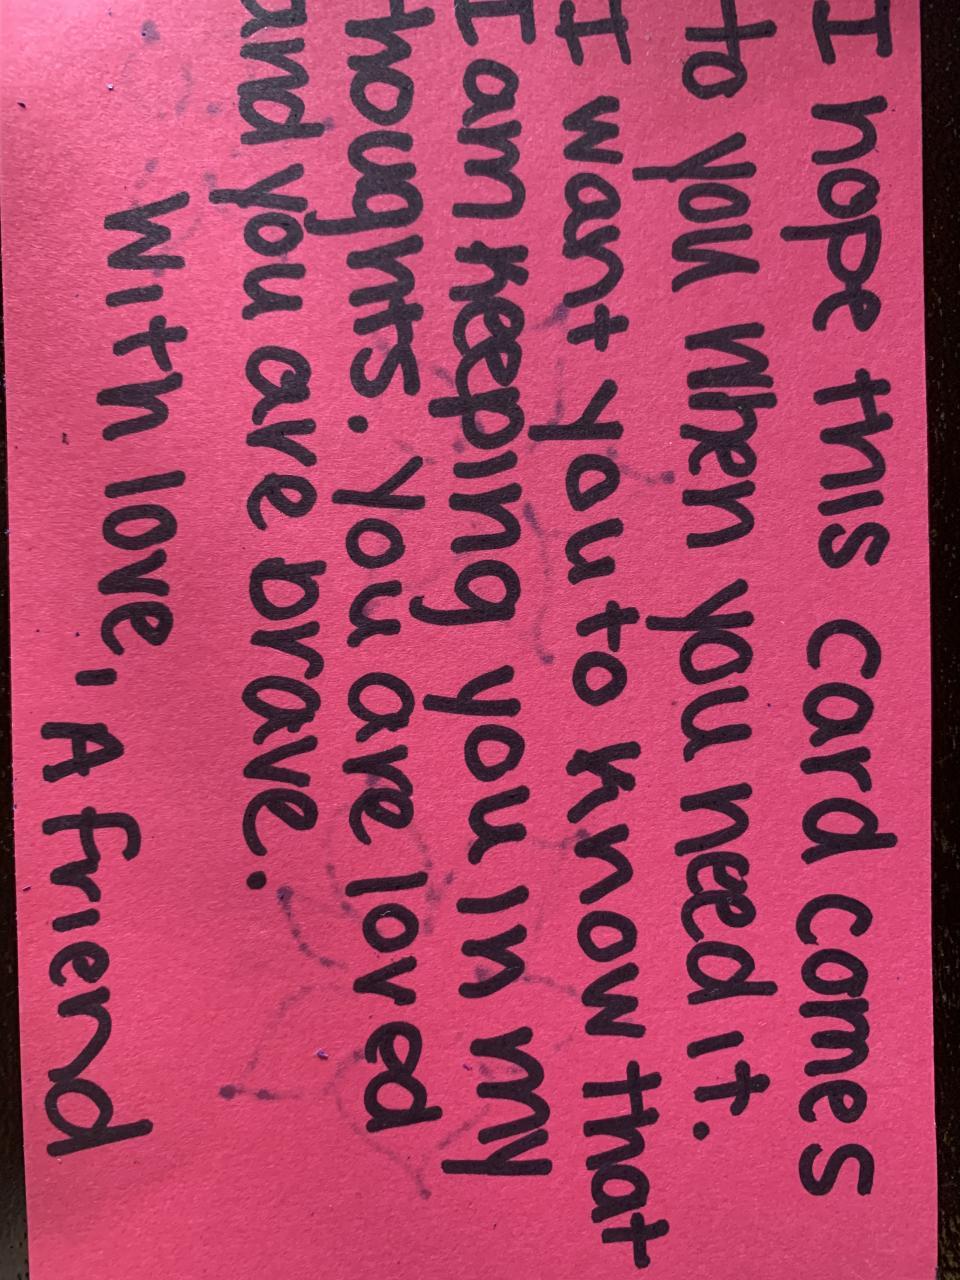 I hope this card comes
to you when you need it.
I want you to know that
I am keeping you in my
thoughts. you are loved
and you are brave.
with love, A friend